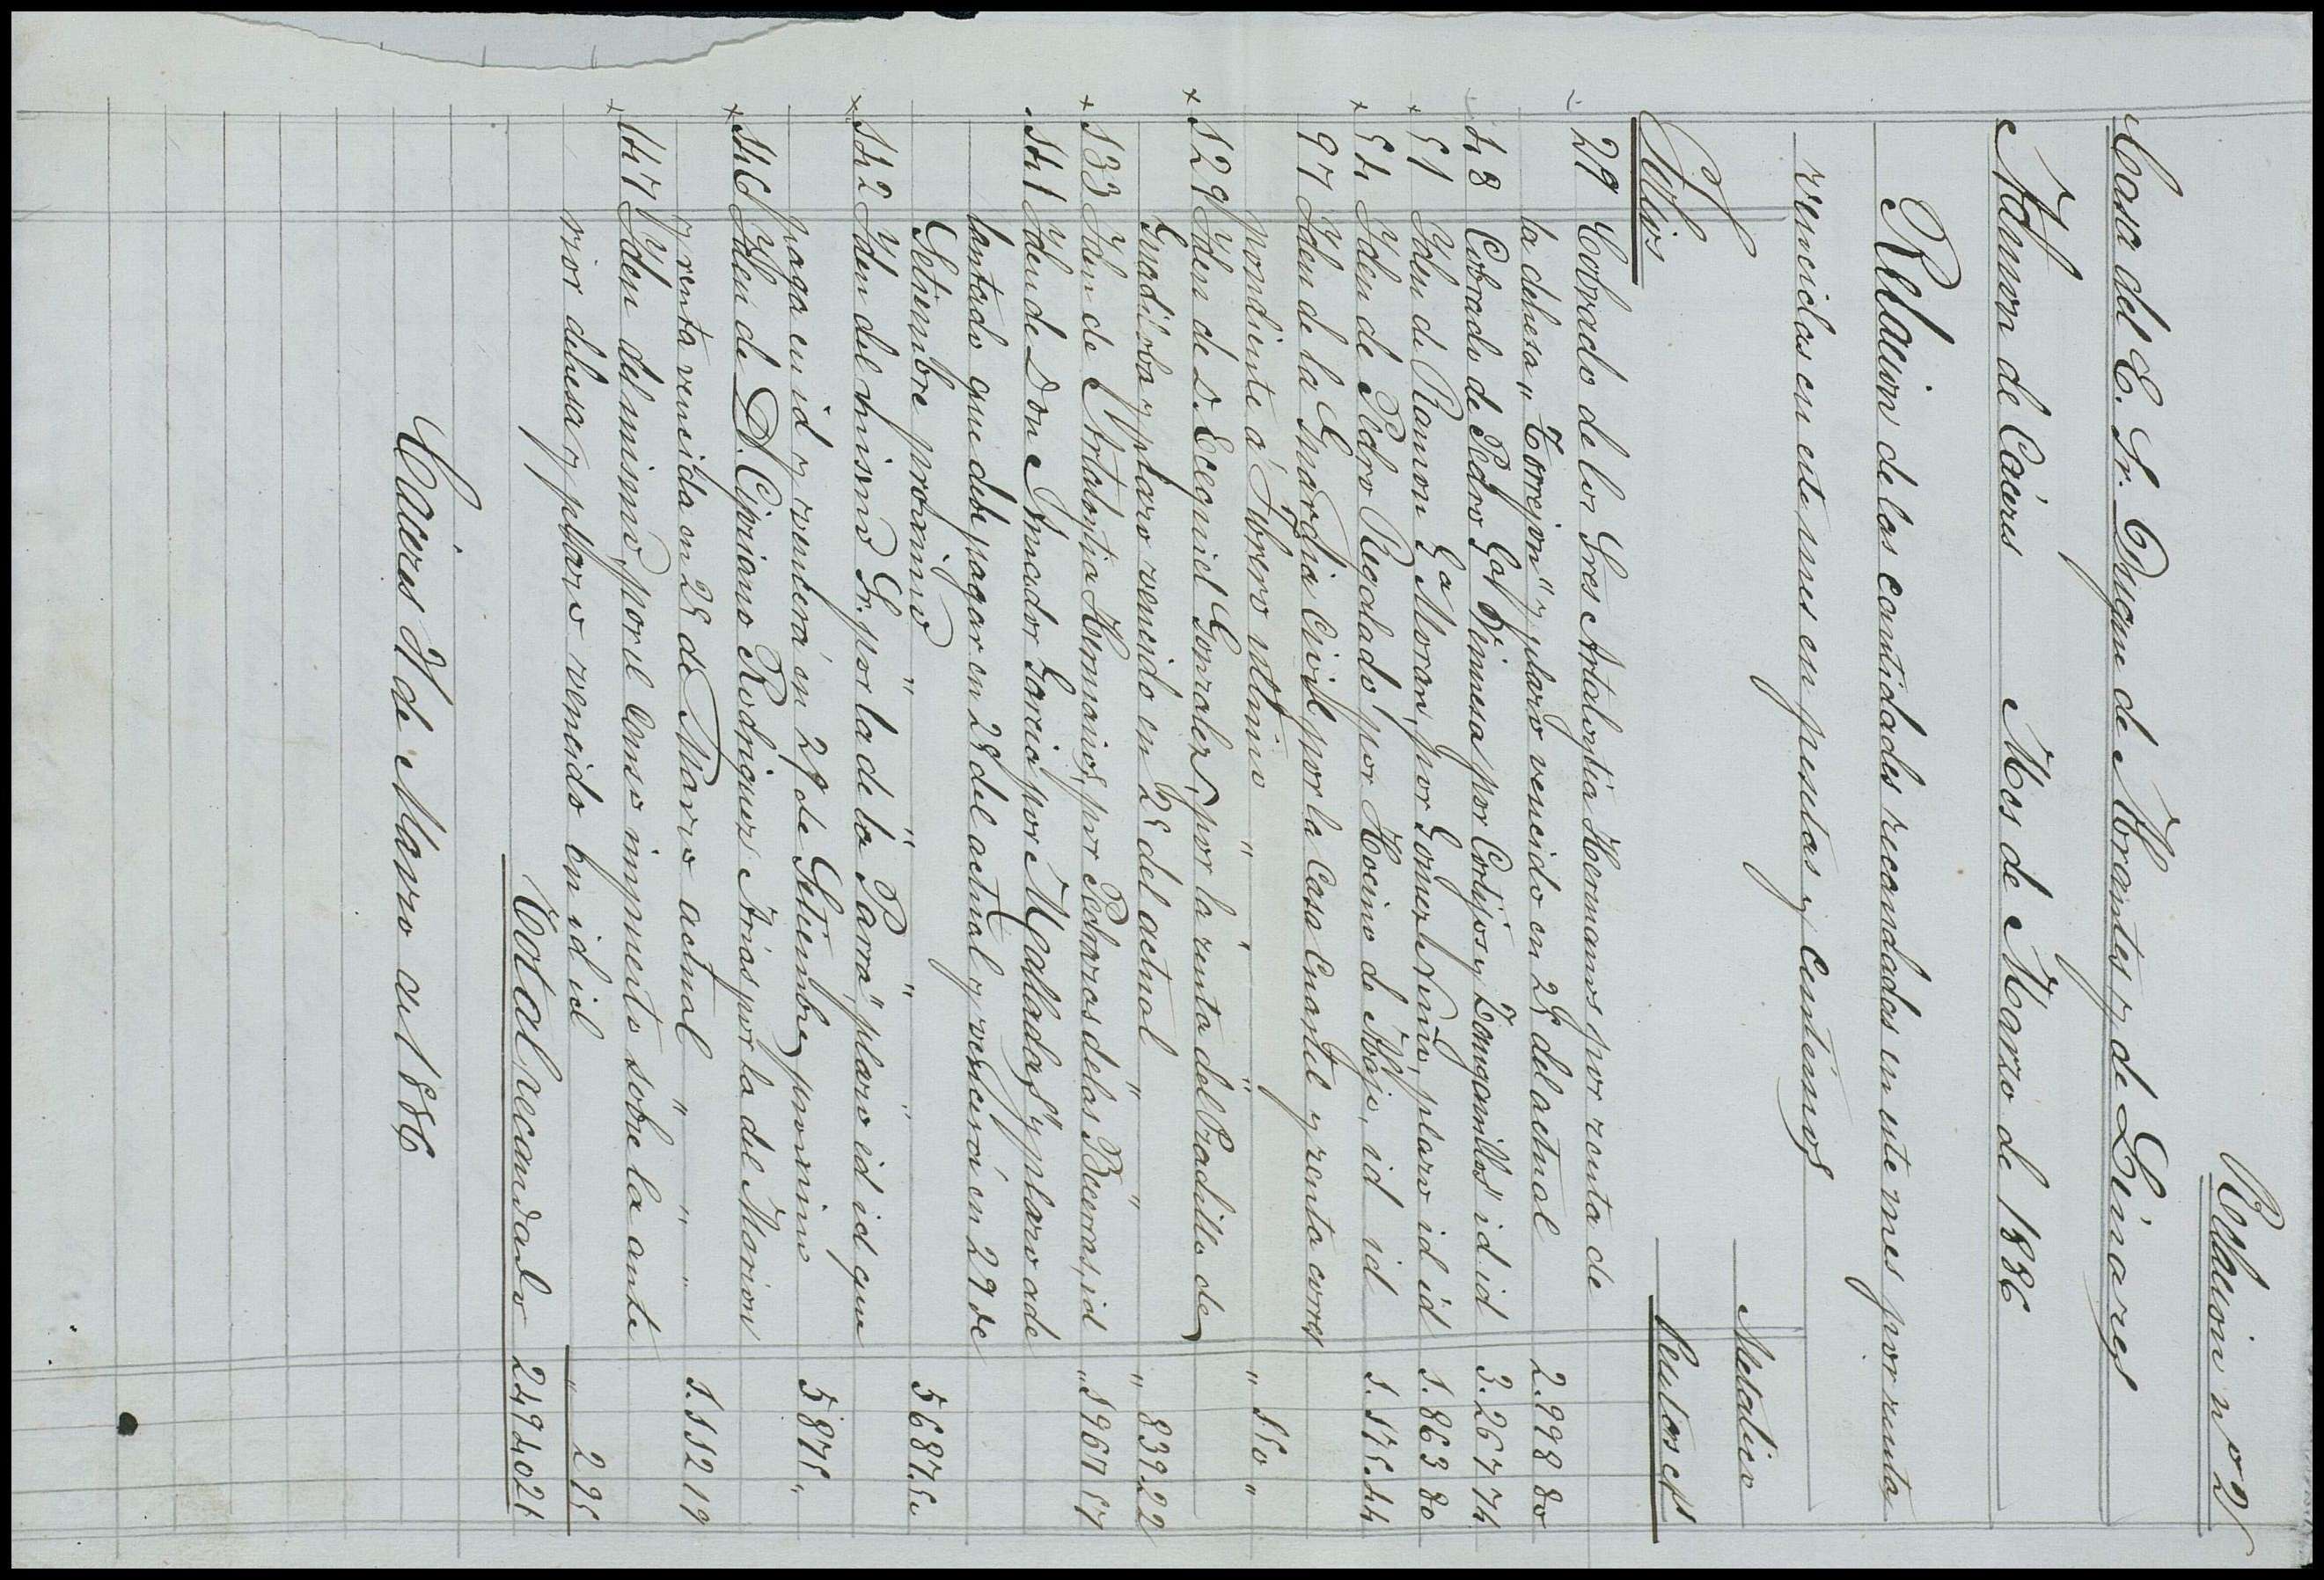 Relacion nº 2
Casa del E. Sr. Duque de Abrantes y de Linares
Admon de Cáceres Mes de Marzo de 1886
Relacion de las cantidades recaudadas en este mes por renta
vencidas en este mes en pesetas y centimos
Metalico
Folios Pesetas cs
29 Cobrado de los Sres Artaloytia Hermanos por renta de
la dehesa "Torrejon" y plazo vencido en 25 del actual 2.998 80
48 Cobrado de Pedro Gat Jimenez por Cortijos y Zanganillas id id 3.267 74
51 Iden de Ramon Gª Moran, por Gomez Nuño, plazo id id 1.863 80
54 Iden de Pedro Regalado por Hocino de Abajo, id id 1.175.44
97 Iden de la Guardia Civil por la Casa Cuartel y renta corres
pondiente á Febrero ultimo " " " " 110 "
129 Iden de D. Ecequiel Gonzalez, por la renta del Pradillo de
Guadiloba y plazo vencido en 25 del actual " " " 839 22
133 Iden de Artaloytia Hermanos, por Pedazos de las Beceras, id " 1967 57
141 Iden de Don Amador Garcia por "Malladas" y plazo ade
lantado que debe pagar en 25 del actual y vencerá en 29 de
Setiembre proximo " " " " 5687.50
142 Iden del mismo Sr. por la de la "Parra" plazo id id que
paga en id y vencerá en 29 de Setiembre proximo 5875 "
146 Iden de D. Cipriano Rodriguez Arias por la del Marion
y renta vencida en 25 de Marzo actual " " " 1.152 19
147 Iden del mismo por el Censo impuesto sobre la ante
rior dehesa y plazo vencido en id id " 2 95
Total recaudado 24940 21
Cáceres 31 de Marzo de 1886